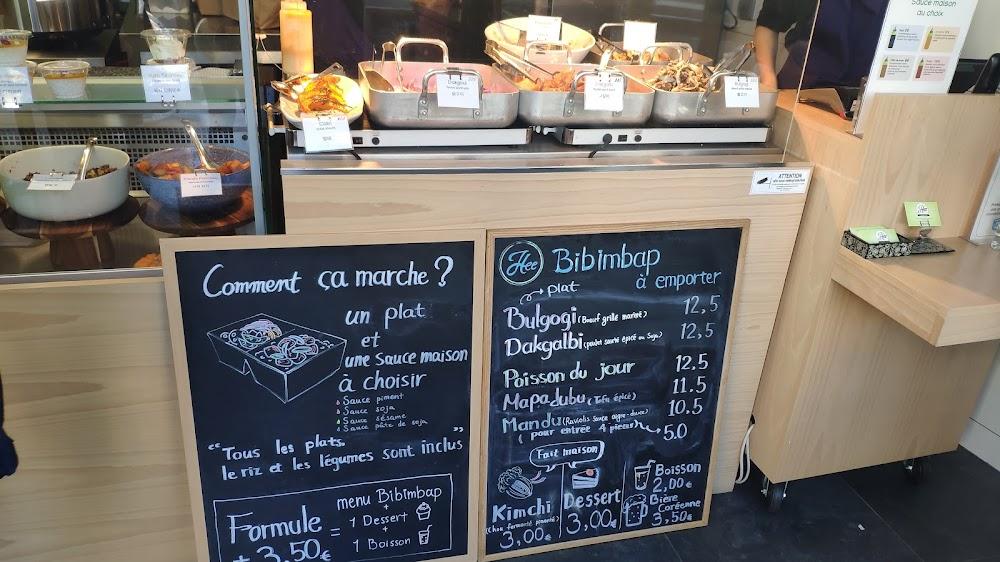 Sauce maison
au choix
ATTENTION
Comment ça marche ?
un plat
et
une Sauce maison
à choisir
Sauce piment
Sauce soja
Sauce sésame
Sauce pâte de soja
"Tous les plats,
le riz et les légumes sont inclus"
Formule
+ 3,50€
=
menu Bibimbap
+
1 Dessert
+
1 Boisson
Hee
Bibimbap
à emporter
plat
Bulgogi (Bœuf grillé mariné) 12,5
Dakgalbi (poulet sauté épicé au Soja) 12,5
Poisson du jour 12.5
Mapadubu (Tofu épicé) 11.5
Mandu (Raviolis Sauce aigre-douce) 10.5
(pour entrée 4 pièces) 5.0
Fait maison
Kimchi
(Chou fermenté pimenté)
3,00€
Dessert
3,00€
Boisson
2,00€
Bière
Coréenne
3,50€